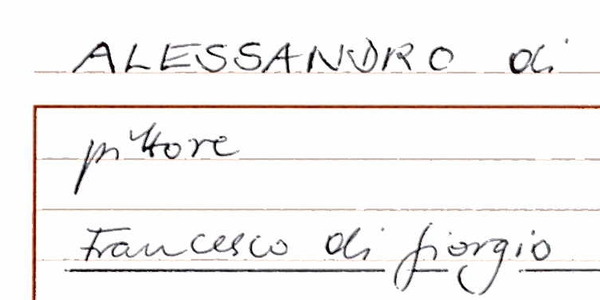 ALESSANDRO di
pittore
Francesco di Giorgio